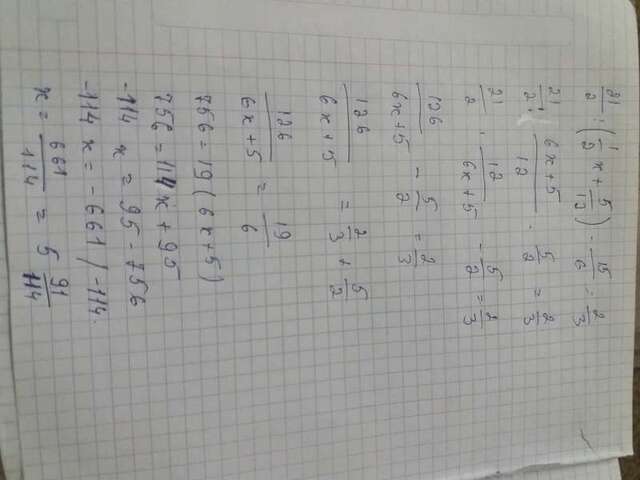 21/2 : (1/2 x + 5/12) - 15/6 = 2/3
21/2 : (6x+5)/12 - 5/2 = 2/3
21/2 · 12/(6x+5) - 5/2 = 2/3
126/(6x+5) - 5/2 = 2/3
126/(6x+5) = 2/3 + 5/2
126/(6x+5) = 19/6
756 = 19(6x+5)
756 = 114x + 95
-114 x = 95 - 756
-114 x = -661 / -114.
x = 661/114 = 5 91/114